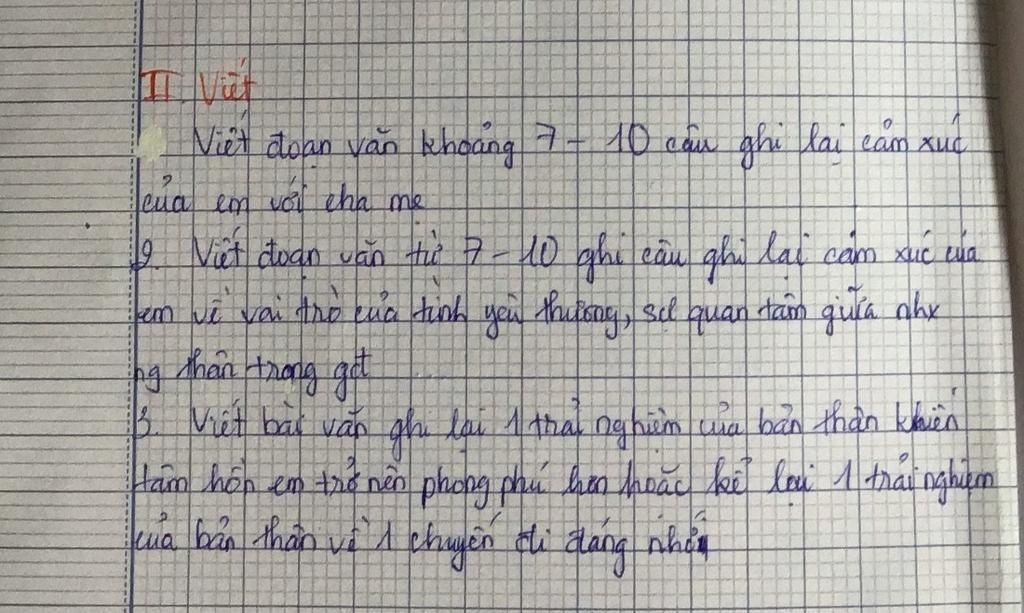 II. Viết
Viết đoạn văn khoảng 7 - 10 câu ghi lại cảm xúc
của em với cha mẹ
2. Viết đoạn văn từ 7 - 10 ghi câu ghi lại cảm xúc của
em về vai trò của tình yêu thương, sự quan tâm giữa nhx
ng thân trong gđ
3. Viết bài văn ghi lại 1 trải nghiệm của bản thân khiến
tâm hồn em trở nên phong phú hơn hoặc kể lại 1 trải nghiệm
của bản thân về 1 chuyến đi đáng nhớ